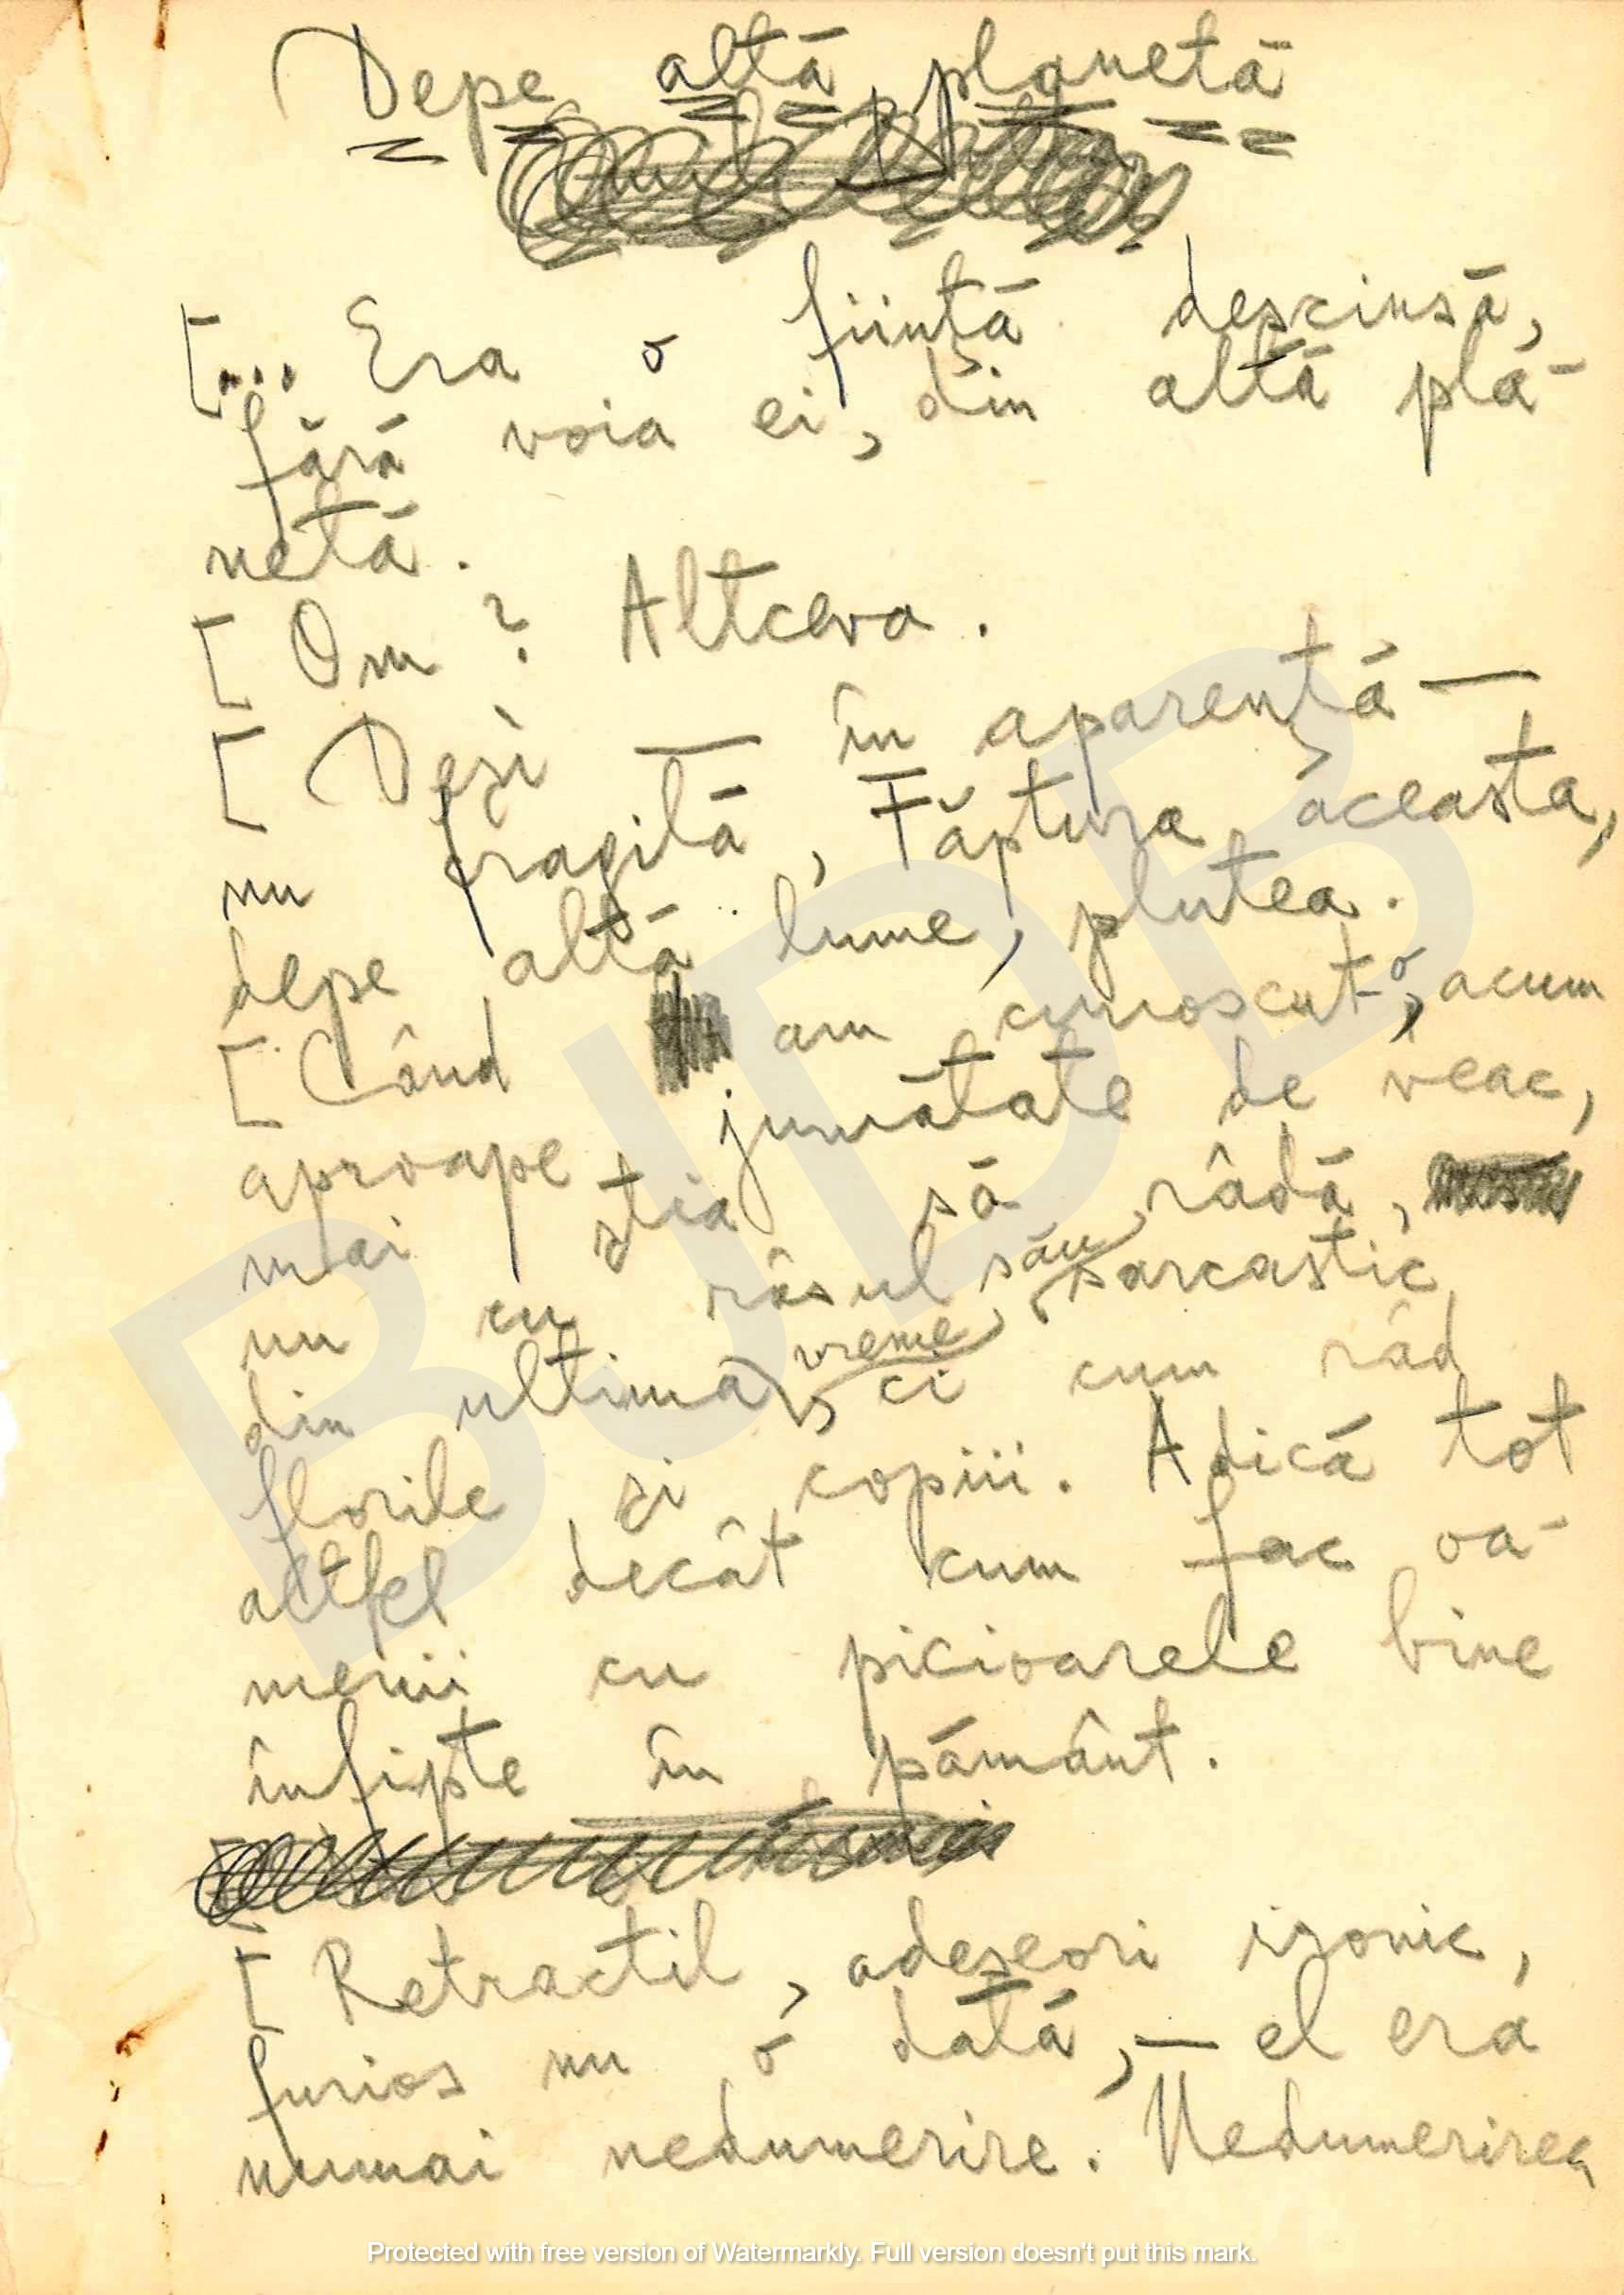 Depe altă planetă
[... Era o ființă descinsă,
fără voia ei, din altă pla-
netă.
[ Om ? Altceva.
[ Deși — în aparență —
nu fragilă, Făptura aceasta,
depe altă lume, plutea.
[ Când am cunoscut-o, acum
aproape jumătate de veac,
mai știa să râdă,
nu cu râsul său sarcastic
din ultima vreme, ci cum râd
florile și copiii. Adică tot
altfel decât cum fac oa-
menii cu picioarele bine
înfipte în pământ.
[ Retractil, adeseori ironic,
furios nu o dată, — el era
numai nedumerire. Nedumerirea
BJDB
Protected with free version of Watermarkly. Full version doesn't put this mark.